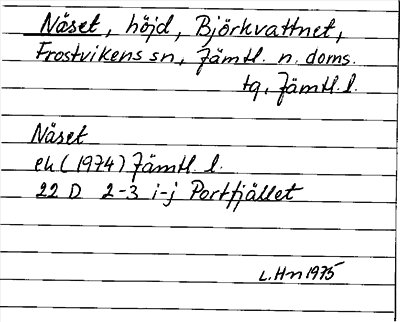 Näset, höjd, Björkvattnet,
Frostvikens sn, Jämtl. n. doms.
tg, Jämtl. l.
Näset
ek (1974) Jämtl. l.
22 D 2-3 i-j Portfjället
L.Hn 1975